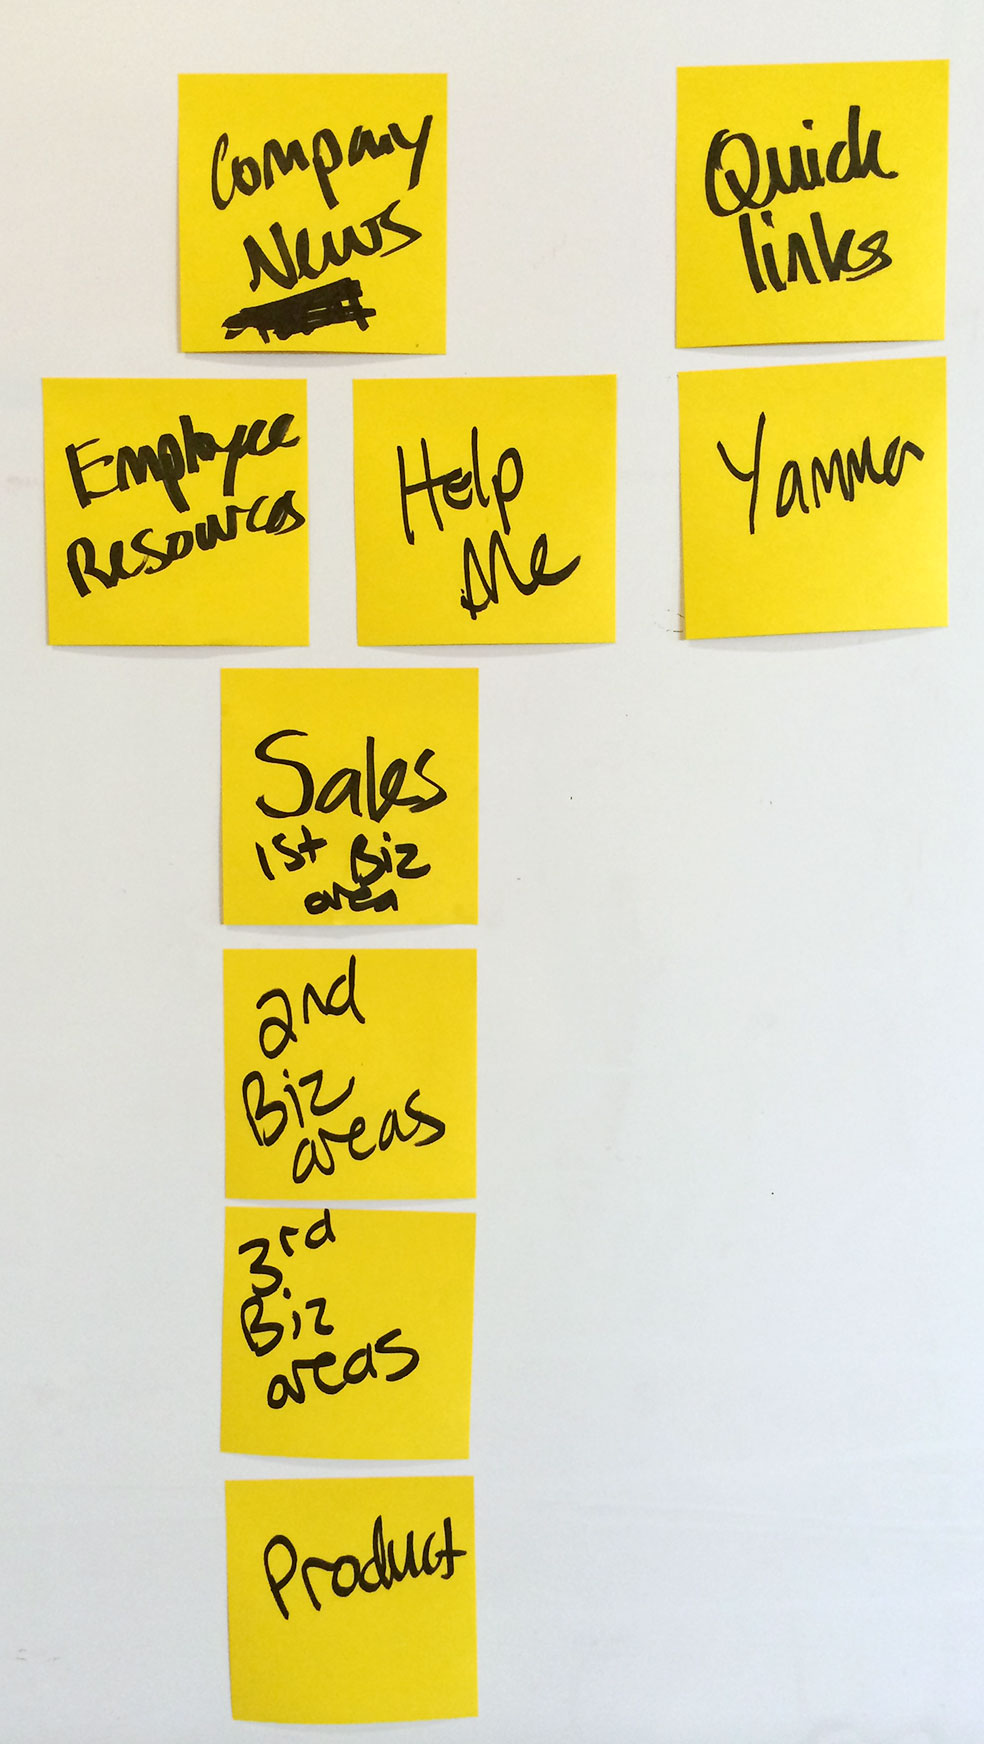 Company
News
Quick
links
Employee
Resources
Help
Me
Yammer
Sales
1st Biz
area
2nd
Biz
areas
3rd
Biz
areas
Product